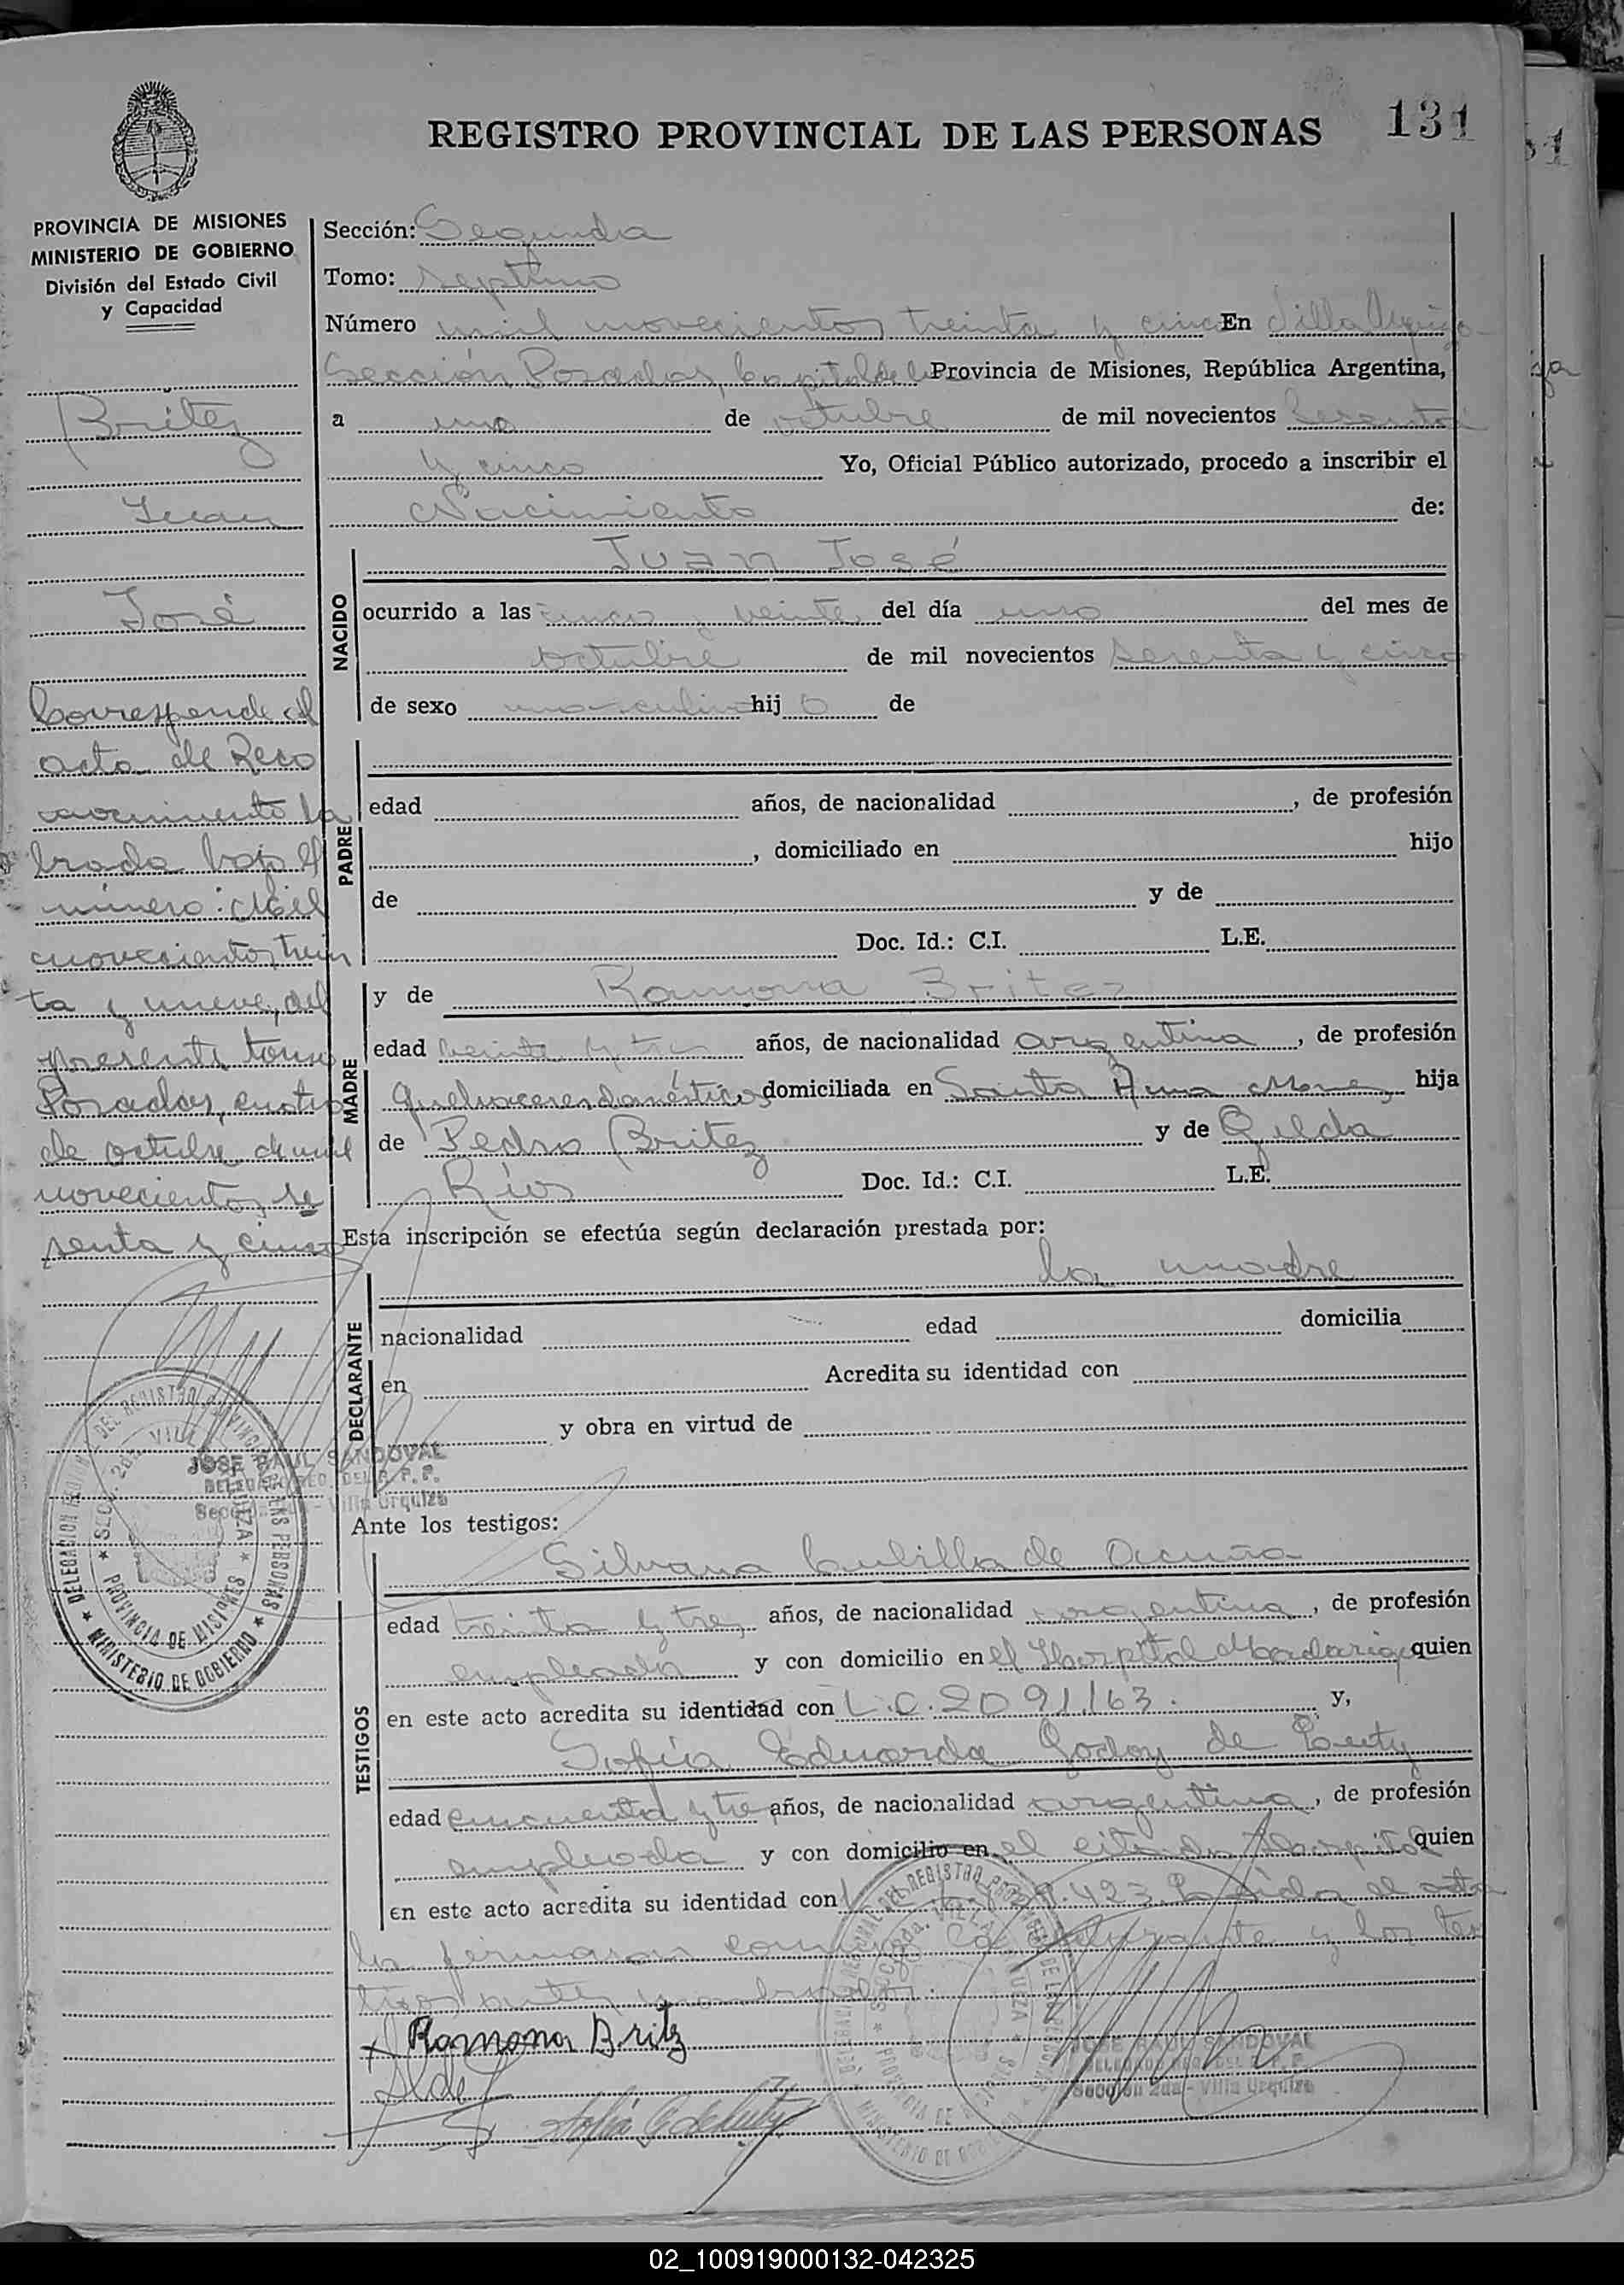 131
REGISTRO PROVINCIAL DE LAS PERSONAS
PROVINCIA DE MISIONES
MINISTERIO DE GOBIERNO
División del Estado Civil
y Capacidad
Britez
Juan
José
Corresponde al
acta de Reco
nocimiento la
brada bajo el
número: Mil
novecientos trein
ta y nueve, del
presente tomo
Posadas, cuatro
de octubre de mil
novecientos se
senta y cinco
Sección: Segunda
Tomo: septimo
Número mil novecientos treinta y cinco En Villa Urquiza
Sección Posadas, Capital de la Provincia de Misiones, República Argentina,
a uno de octubre de mil novecientos sesenta
y cinco Yo, Oficial Público autorizado, procedo a inscribir el
Nacimiento de:
NACIDO
Juan José
ocurrido a las cinco y veinte del día uno del mes de
octubre de mil novecientos sesenta y cinco
de sexo masculino hij o de
PADRE
edad años, de nacionalidad , de profesión
, domiciliado en hijo
de y de
Doc. Id.: C.I. L.E.
MADRE
y de Ramona Britez
edad veinte y tres años, de nacionalidad argentina, de profesión
quehaceres domésticos domiciliada en Santa Ana Mnes, hija
de Pedro Britez y de Gilda
Ríos Doc. Id.: C.I. L.E.
Esta inscripción se efectúa según declaración prestada por:
la madre
DECLARANTE
nacionalidad edad domicilia
en Acredita su identidad con
y obra en virtud de
Ante los testigos:
TESTIGOS
Silvana Cubilla de Acuña
edad treinta y tres años, de nacionalidad argentina, de profesión
empleada y con domicilio en el Hospital Madariaga quien
en este acto acredita su identidad con L.C. 2091.163. y,
Sofía Eduarda Godoy de
edad cincuenta y tres años, de nacionalidad argentina, de profesión
empleada y con domicilio en el citado Hospital quien
en este acto acredita su identidad con 423 Leída el acta
la firmaron conmigo la declarante y los tes
tigos antes nombrados.
Ramona Britz
JOSE RAUL SANDOVAL
DELEGADO REG. DEL R. P. P.
Sección 2da - Villa Urquiza
DELEGACION REGIONAL DEL REGISTRO PROVINCIAL DE LAS PERSONAS
SECC. 2da. VILLA URQUIZA
PROVINCIA DE MISIONES
MINISTERIO DE GOBIERNO
JOSE RAUL SANDOVAL
DELEGADO REG. DEL R. P. P.
Sección 2da - Villa Urquiza
02_100919000132-042325